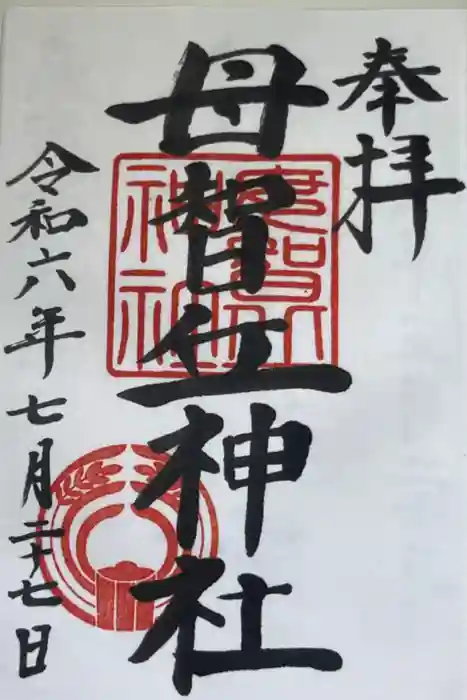 奉拝
母智丘神社
神社
令和六年七月二十七日